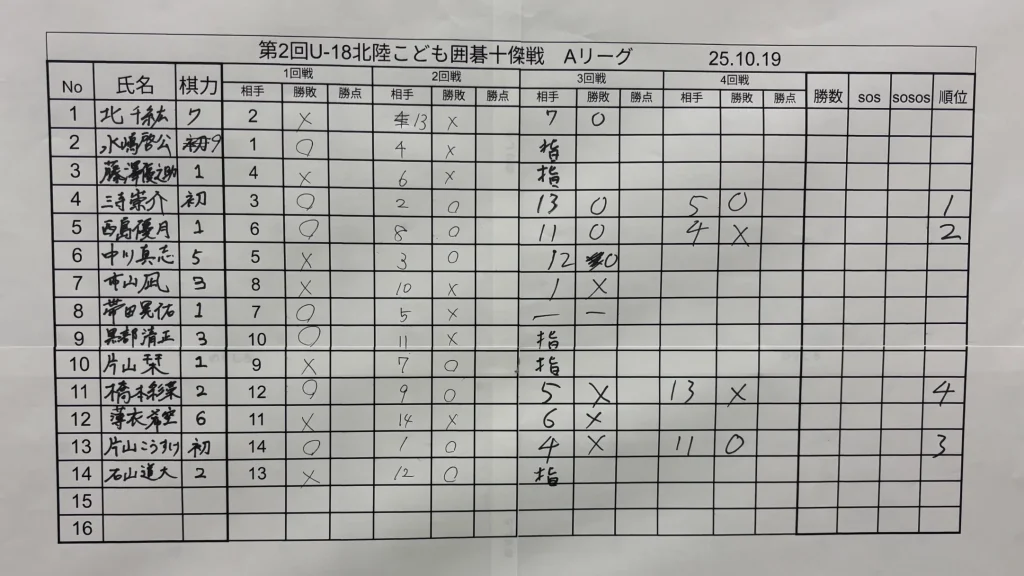 第2回U-18北陸こども囲碁十傑戦 Aリーグ 25.10.19
No 氏名 棋力 1回戦 2回戦 3回戦 4回戦 勝数 sos sosos 順位
相手 勝敗 勝点 相手 勝敗 勝点 相手 勝敗 勝点 相手 勝敗 勝点
1 北 千紘 7 2 × 13 × 7 ○
2 水嶋啓公 初 9 1 ○ 4 × 指
3 藤澤 之助 1 4 × 6 × 指
4 三寺崇介 初 3 ○ 2 ○ 13 ○ 5 ○ 1
5 西島優月 1 6 ○ 8 ○ 11 ○ 4 × 2
6 中川真志 5 5 × 3 ○ 12 ○
7 市山凪 3 8 × 10 × 1 ×
8 帯田晃佑 1 7 ○ 5 × ー ー
9 黒部清正 3 10 ○ 11 × 指
10 片山 栞 1 9 × 7 ○ 指
11 橋本彩葉 2 12 ○ 9 ○ 5 × 13 × 4
12 薄衣 6 11 × 14 × 6 ×
13 片山こうすけ 初 14 ○ 1 ○ 4 × 11 ○ 3
14 石山道大 2 13 × 12 ○ 指
15
16